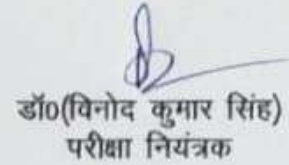 डॉ0(विनोद कुमार सिंह)
परीक्षा नियंत्रक